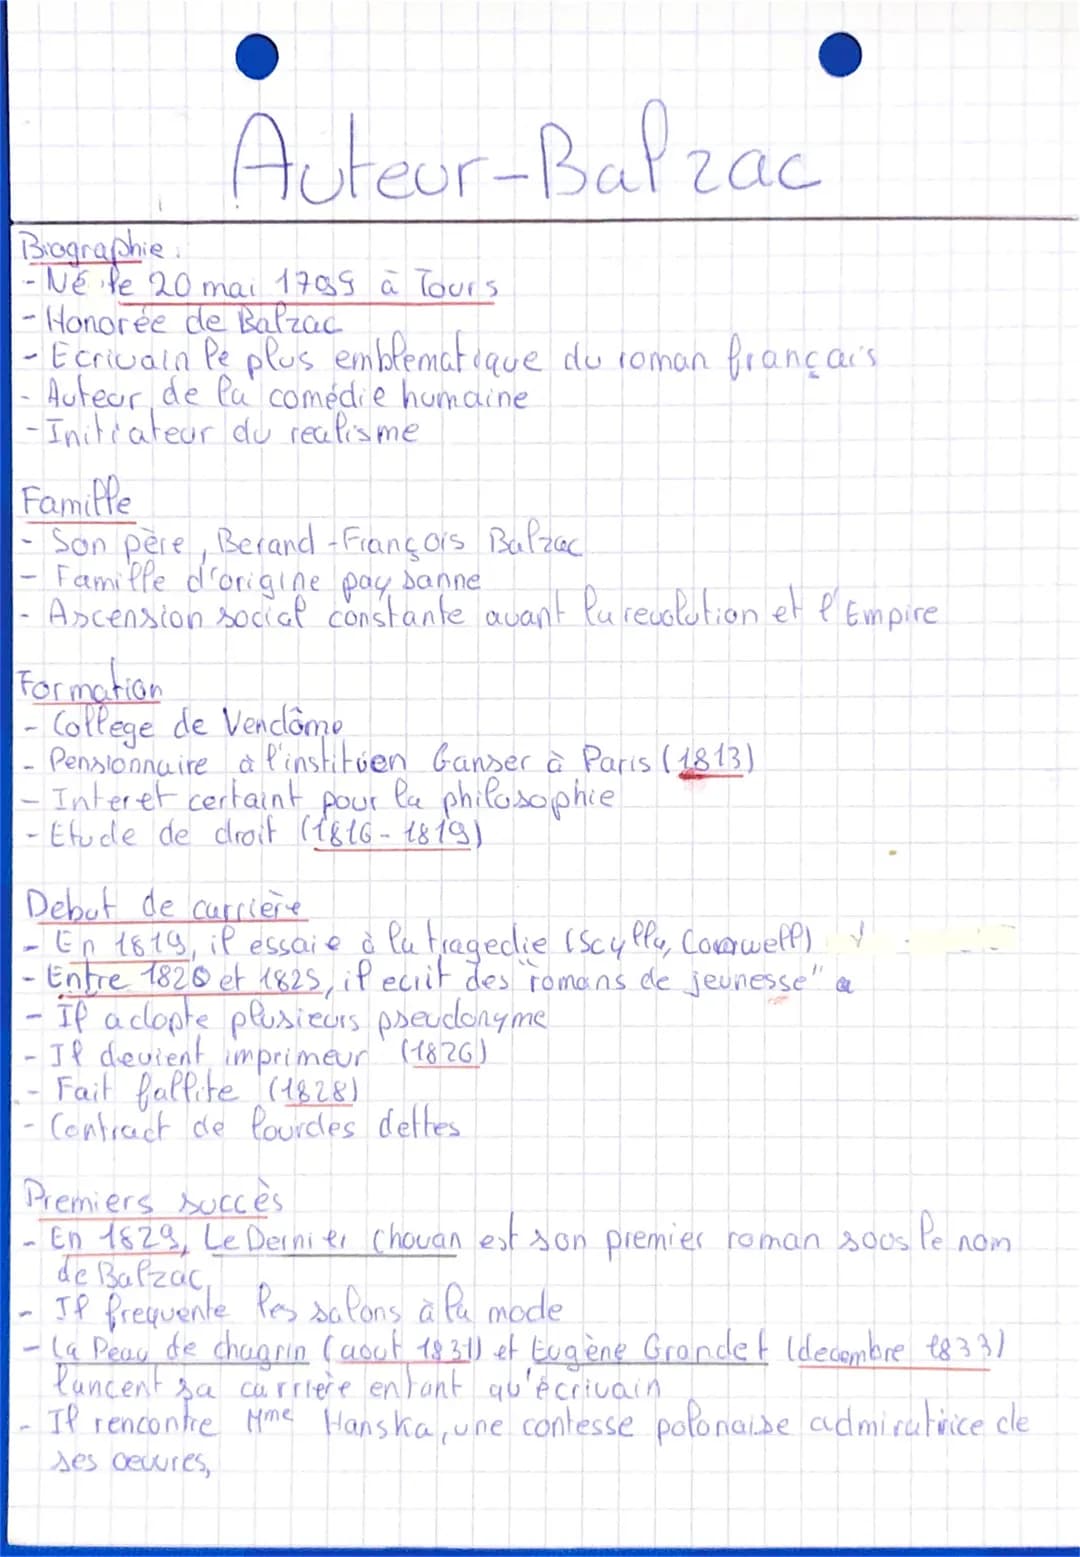 Auteur-Balzac
Biographie :
- Né le 20 mai 1799 à Tours
- Honorée de Balzac
- Ecrivain le plus emblematique du roman français
- Auteur de la comédie humaine
- Initiateur du realisme
Famille
- Son père, Berand-François Balzac
- Famille d'origine paysanne
- Ascension social constante avant la revolution et l'Empire
Formation
- College de Vendôme
- Pensionnaire à l'instituen Ganser à Paris (1813)
- Interet certaint pour la philosophie
- Etude de droit (1816-1819)
Debut de carrière
- En 1819, il essaie à la tragedie (Scylla, Coorwell)
- Entre 1820 et 1825, il ecrit des "romans de jeunesse"
- Il adopte plusieurs pseudonyme
- Il devient imprimeur (1826)
- Fait fallite (1828)
- Contract de lourdes dettes
Premiers succès
- En 1829, Le Dernier Chouan est son premier roman sous le nom
de Balzac,
- Il frequente les salons à la mode
- La Peau de chagrin (aout 1831) et Eugène Grandet (decembre 1833)
lancent sa carrière entant qu'écrivain
- Il rencontre Mme Hanska, une contesse polonaise admiratrice de
ses oeuvres,